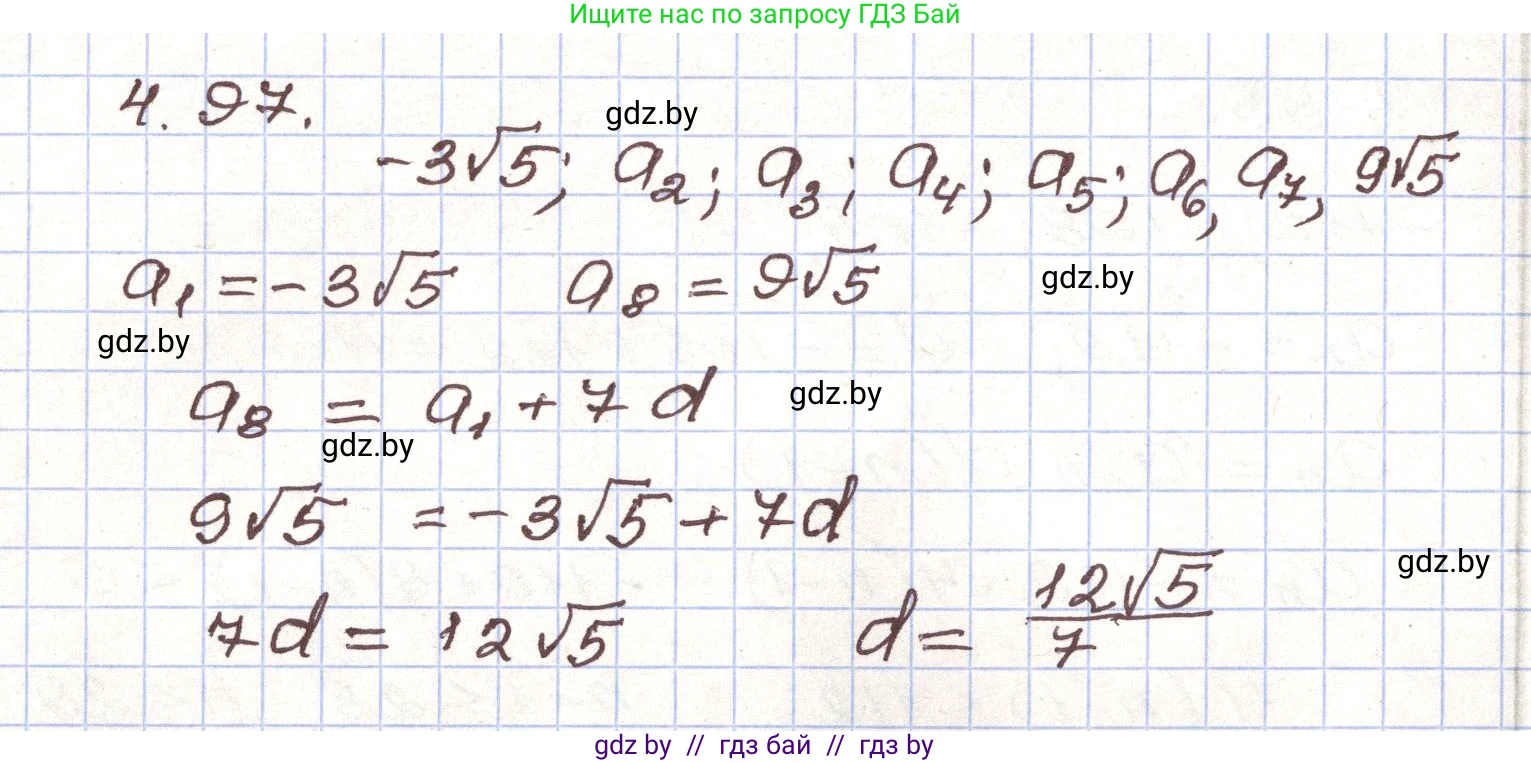 Ищите нас по запросу ГДЗ Бай
4.97.
gdz.by
-3√5; a₂; a₃; a₄; a₅; a₆, a₇, 9√5
a₁ = -3√5 a₈ = 9√5
gdz.by
gdz.by
a₈ = a₁ + 7d
gdz.by
gdz.by
9√5 = -3√5 + 7d
gdz.by
7d = 12√5 d = 12√5/7
gdz by // гдз бай // гдз by